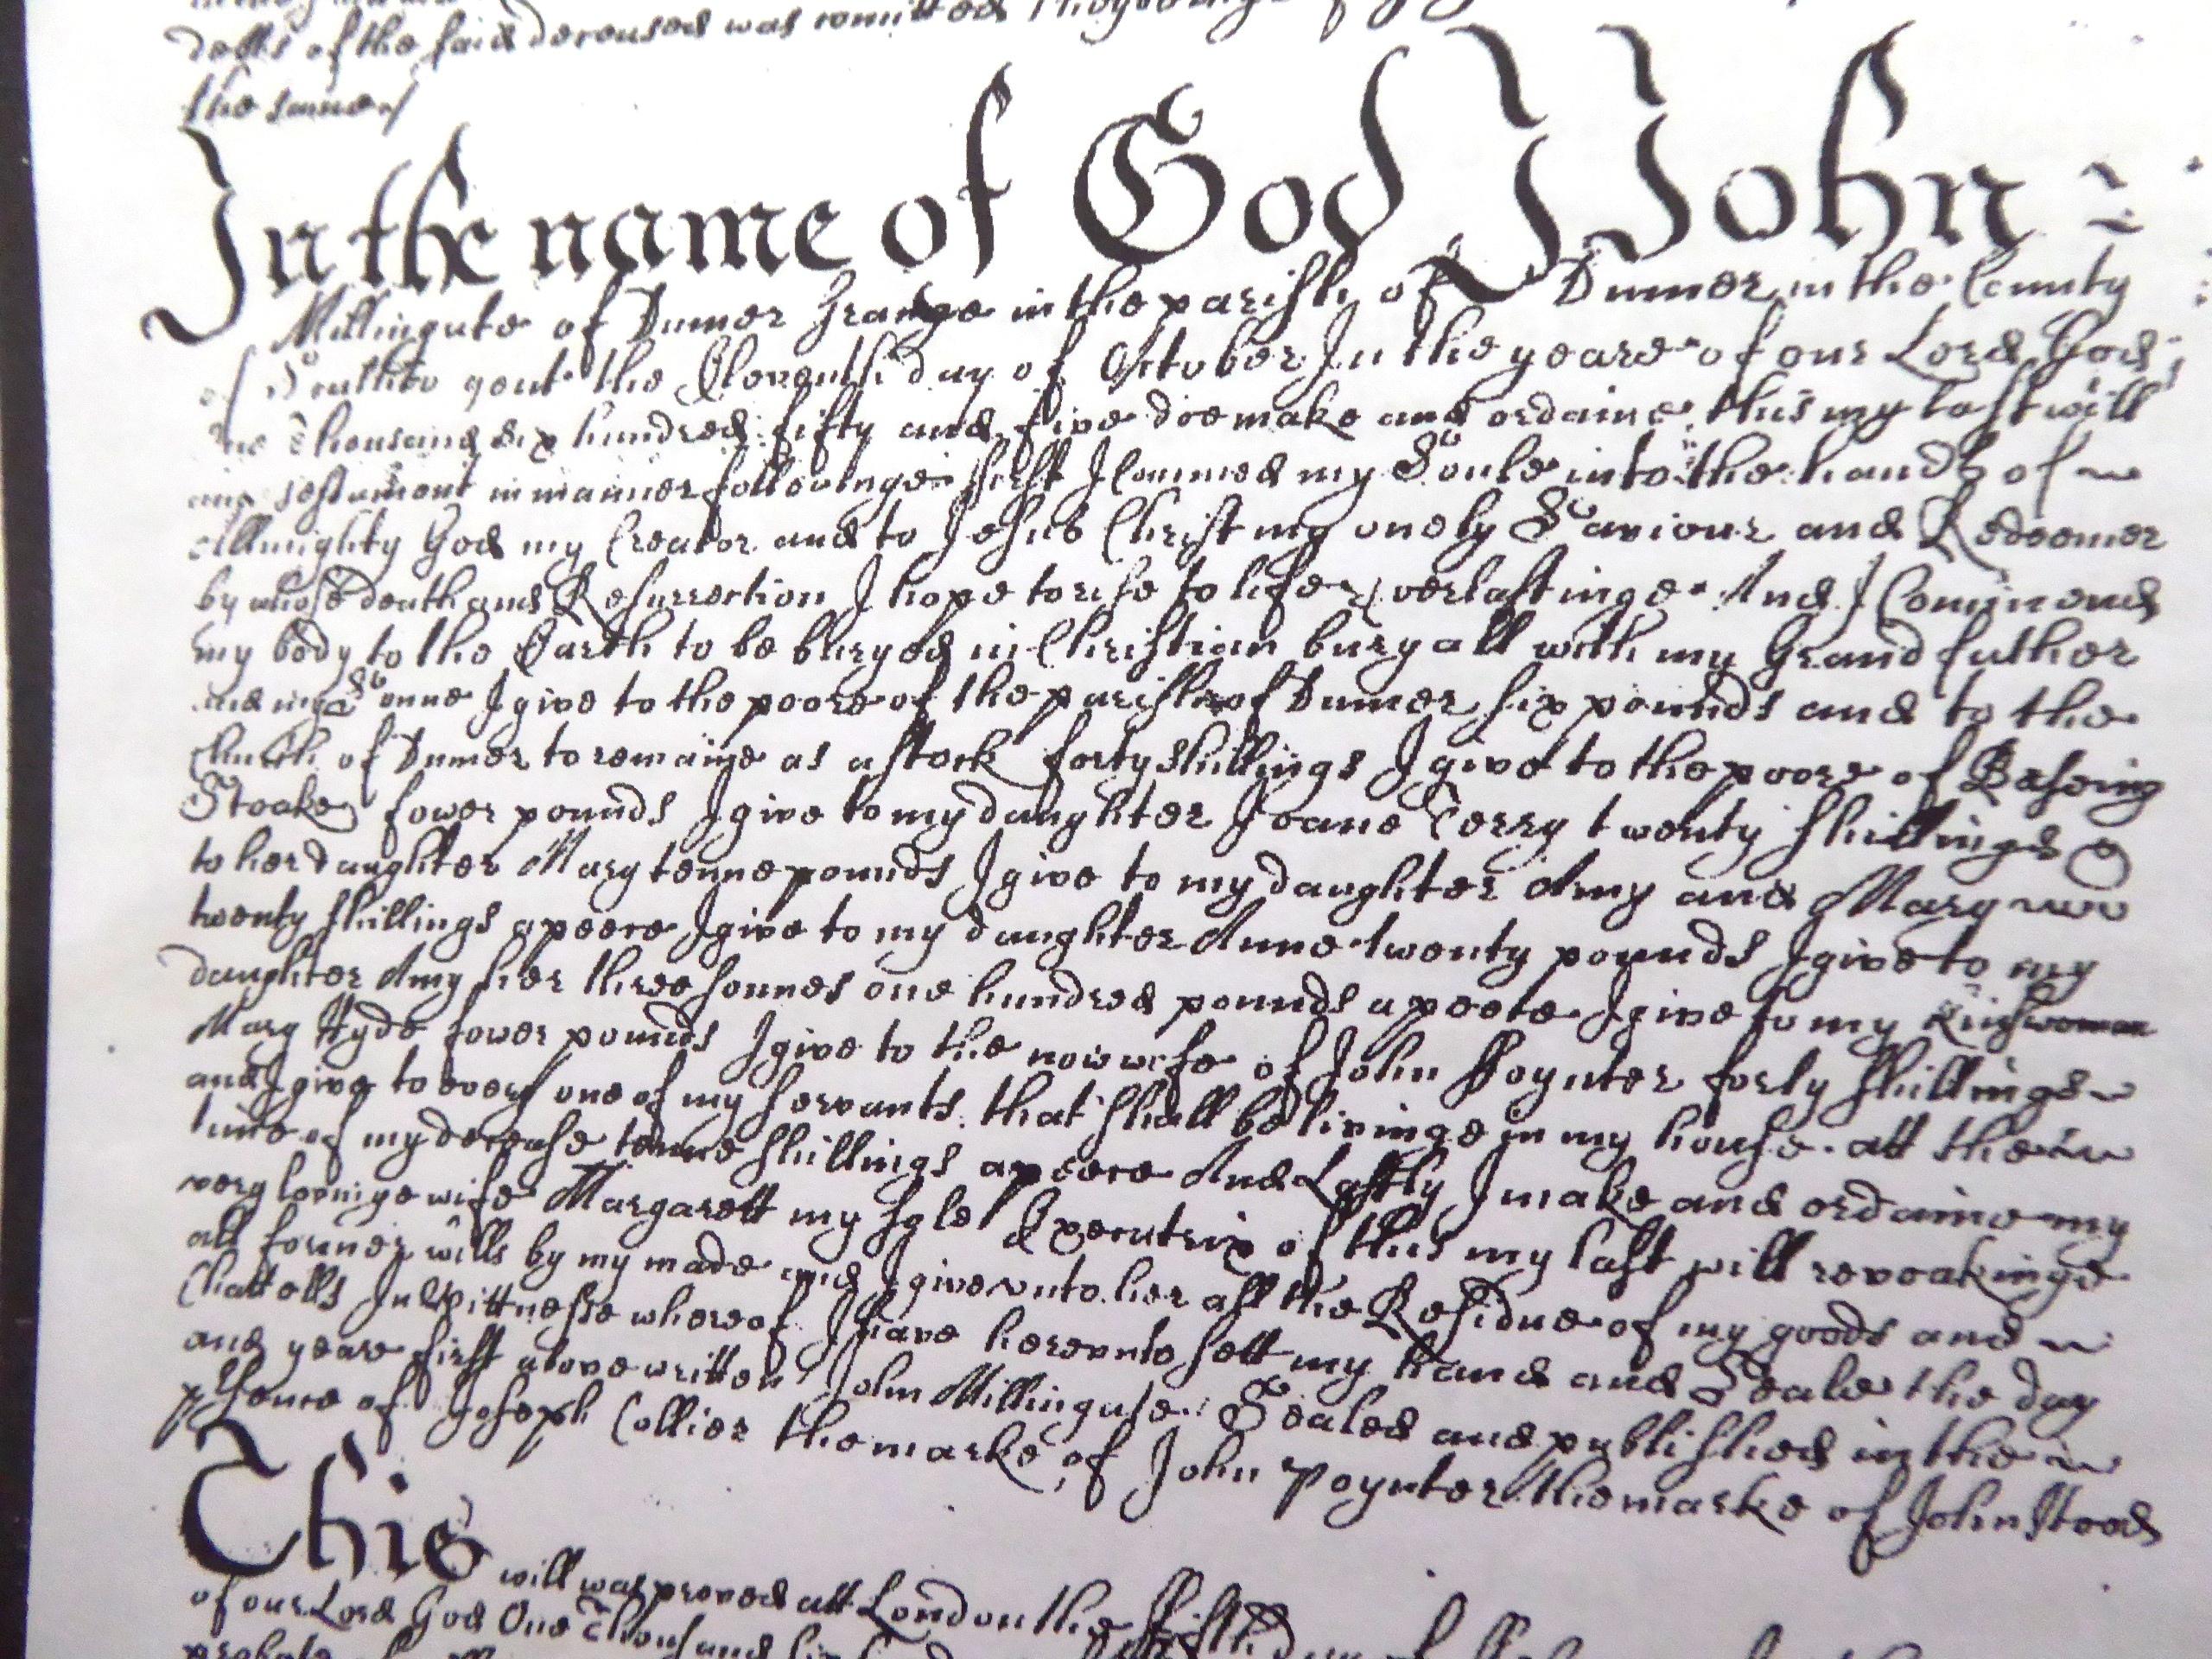 debts of the said deceased was comitted
the same
In the name of God I John
Millingate of Dumer Grange in the parish of Dumer in the County
of Southton gent the Eleventh day of October In the yeare of our Lord God
one Thousand six hundred fifty and five doe make and ordaine this my last will
and testament in manner followinge first I Commed my Soule into the hands of
Allmighty God my Creator and to Jesus Christ my onely Saviour and Redeemer
by whose death and Resurrection I hope to rise to life everlastinge And I Commend
my body to the Earth to be buryed in Christian buryall with my Grandfather
and my Sonne I give to the poore of the parish of Dumer six pounds and to the
Church of Dumer to remaine as a stock forty shillings I give to the poore of Baseing
Stoake fower pounds I give to my daughter Joane Terry twenty shillings &
to her daughter Mary tenne pounds I give to my daughter Amy and Mary
twenty shillings apeece I give to my daughter Anne twenty pounds I give to my
daughter Amy her three sonnes one hundred pounds apeece I give to my Kinswoman
Mary Hyde fower pounds I give to the now wife of John Poynter forty shillings
and I give to every one of my servants that shall be livinge in my house att the
time of my decease tenne shillings apeece And Lastly I make and ordaine my
very lovinge wife Margarett my sole Executrix of this my last will revoakinge
all former wills by my made and I give unto her all the Residue of my goods and
Chattells In Wittnesse whereof I have hereunto sett my hand and Seale the day
and yeare first above written John Millingate Sealed and published in the
psence of Joseph Collier the marke of John Poynter the marke of John Stood
This will was proved att London the fifth day of
of our Lord God One Thousand six
probate